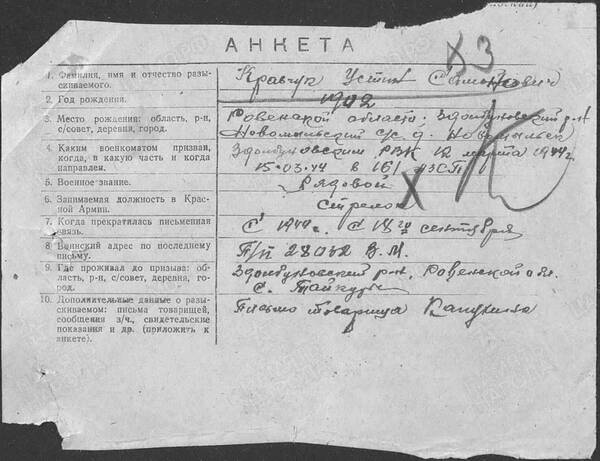 К3
АНКЕТА
1. Фамилия, имя и отчество разы-
скиваемого.
Кравчук Устин Самойлович
2. Год рождения.
1902
3. Место рождения: область, р-н,
с/совет, деревня, город.
Ровенской области. Здолбуновский р-н
Новомыльский с/с д. Новомыльск
4. Каким военкоматом призван,
когда, в какую часть и когда
направлен.
Здолбуновским РВК 12 марта 1944 г.
15.03.44 в 161 АЗСП
5. Военное звание.
Рядовой
6. Занимаемая должность в Крас-
ной Армии.
Стрелок
7. Когда прекратилась письменная
связь.
С 1944 г. с 18го сентября
8. Воинский адрес по последнему
письму.
П/п 28042 В.М.
9. Где проживал до призыва: об-
ласть, р-н, с/совет, деревня, го-
род.
Здолбуновский р-н, Ровенской обл.
с. Тайкуры
10. Дополнительные данные о разы-
скиваемом: письма товарищей,
сообщения з/ч., свидетельские
показания и др. (приложить к
анкете).
Письмо товарища